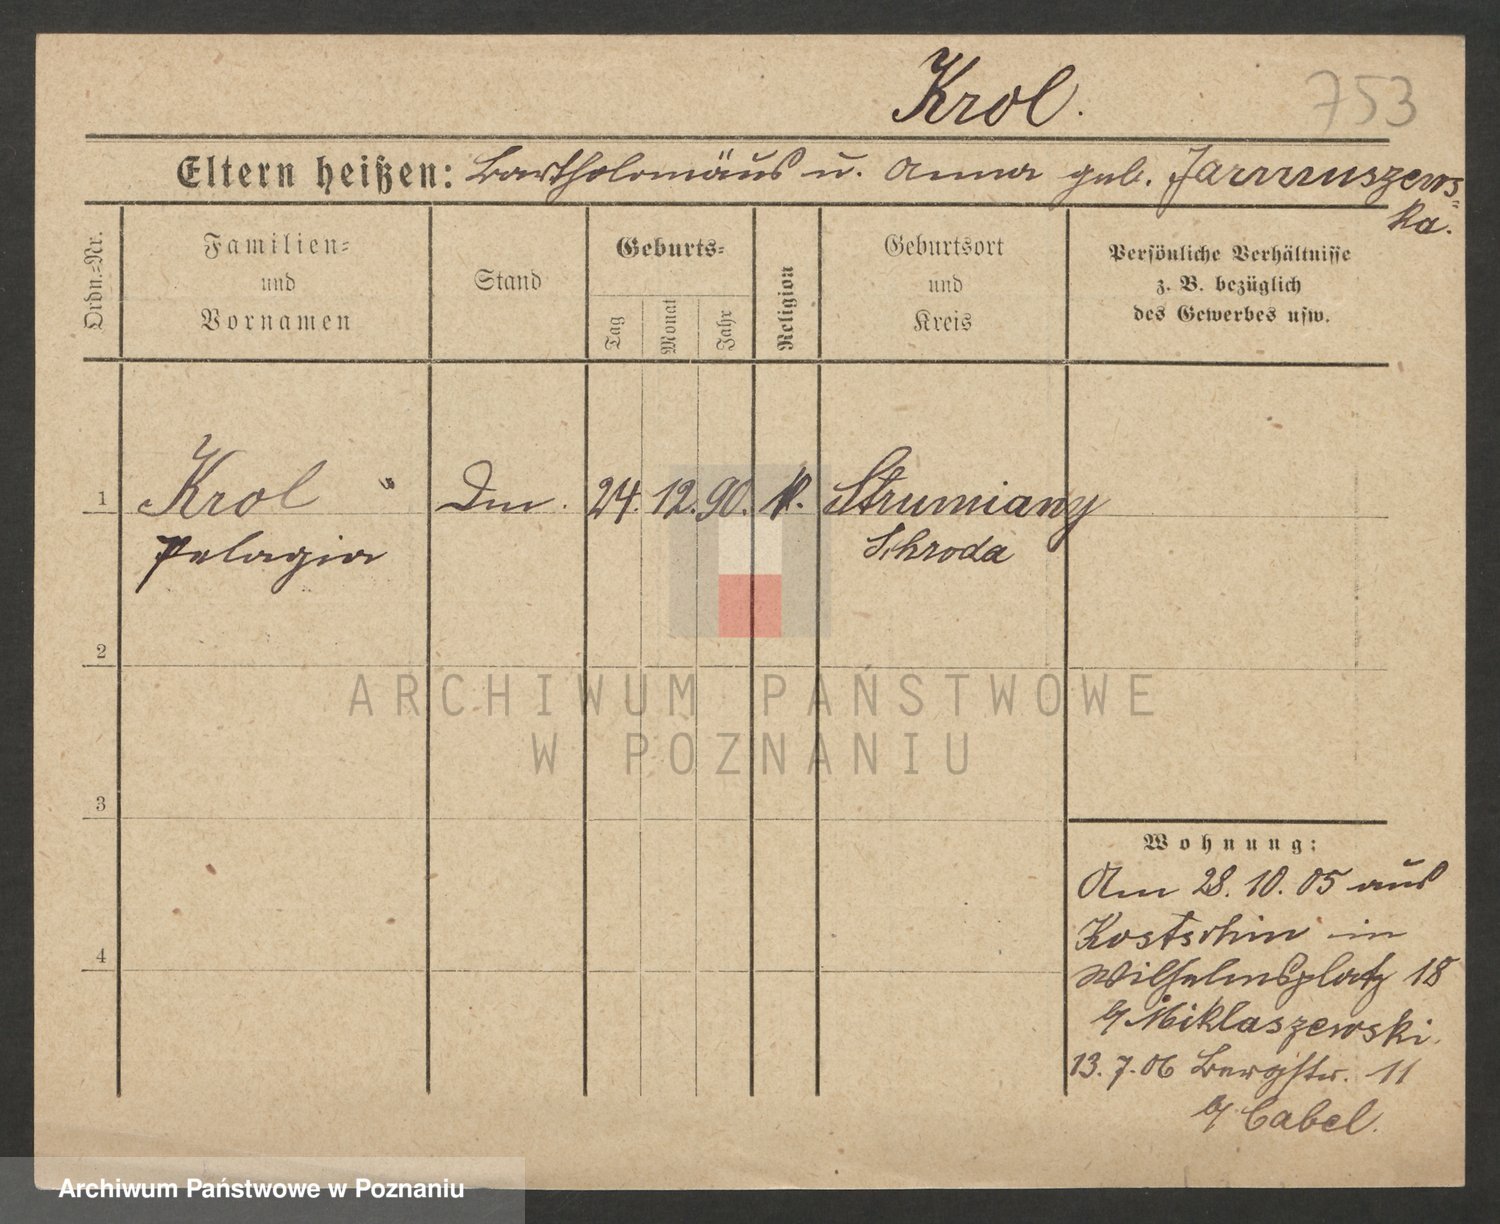 Krol.
753
Eltern heißen: Bartholomäus u. Anna geb. Jarmuszews=
ka.
Ordn.=Nr.
Familien=
und
Vornamen
Stand
Geburts=
Tag
Monat
Jahr
Religion
Geburtsort
und
Kreis
Persönliche Verhältnisse
z. B. bezüglich
des Gewerbes usw.
1 Krol 24. 12. 90. Strumiany
Pelagia Schroda
2
3
4
Wohnung:
Am 28. 10. 05 aus
Kostschin in
Wilhelmsplatz 18
b/ Miklaszewski.
13. 7. 06 Bergstr. 11
b/ Cabel.
ARCHIWUM PAŃSTWOWE
W POZNANIU
Archiwum Państwowe w Poznaniu